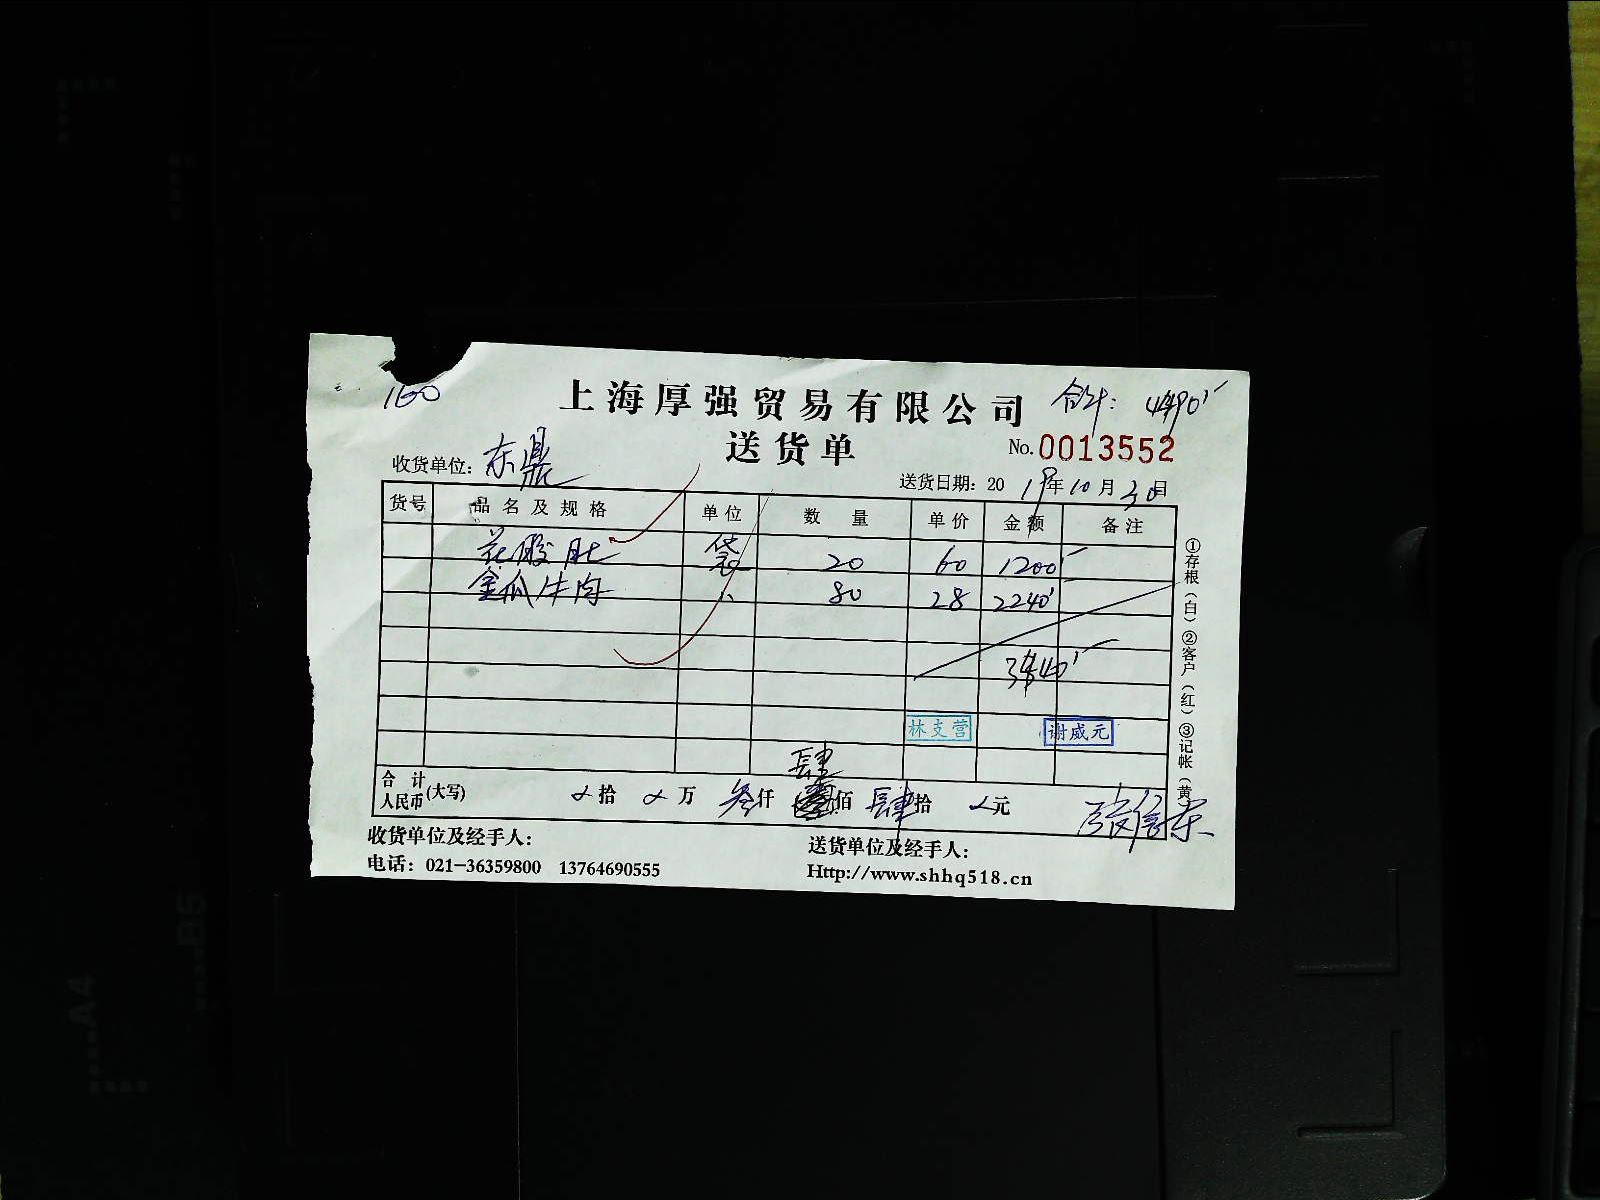 160
上海厚强贸易有限公司 合计: 4490
送货单 No.0013552
收货单位: 东鼎 送货日期: 2019年10月30日
货号 品名及规格 单位 数量 单价 金额 备注
花胶肚 袋 20 60 1200
金瓜牛肉 〃 80 28 2240
3440
林支营 谢威元
肆
合计人民币(大写) 拾 万 叁仟 佰 肆拾 元
收货单位及经手人: 送货单位及经手人:
电话: 021-36359800 13764690555 Http://www.shhq518.cn
①存根(白)②客户(红)③记帐(黄